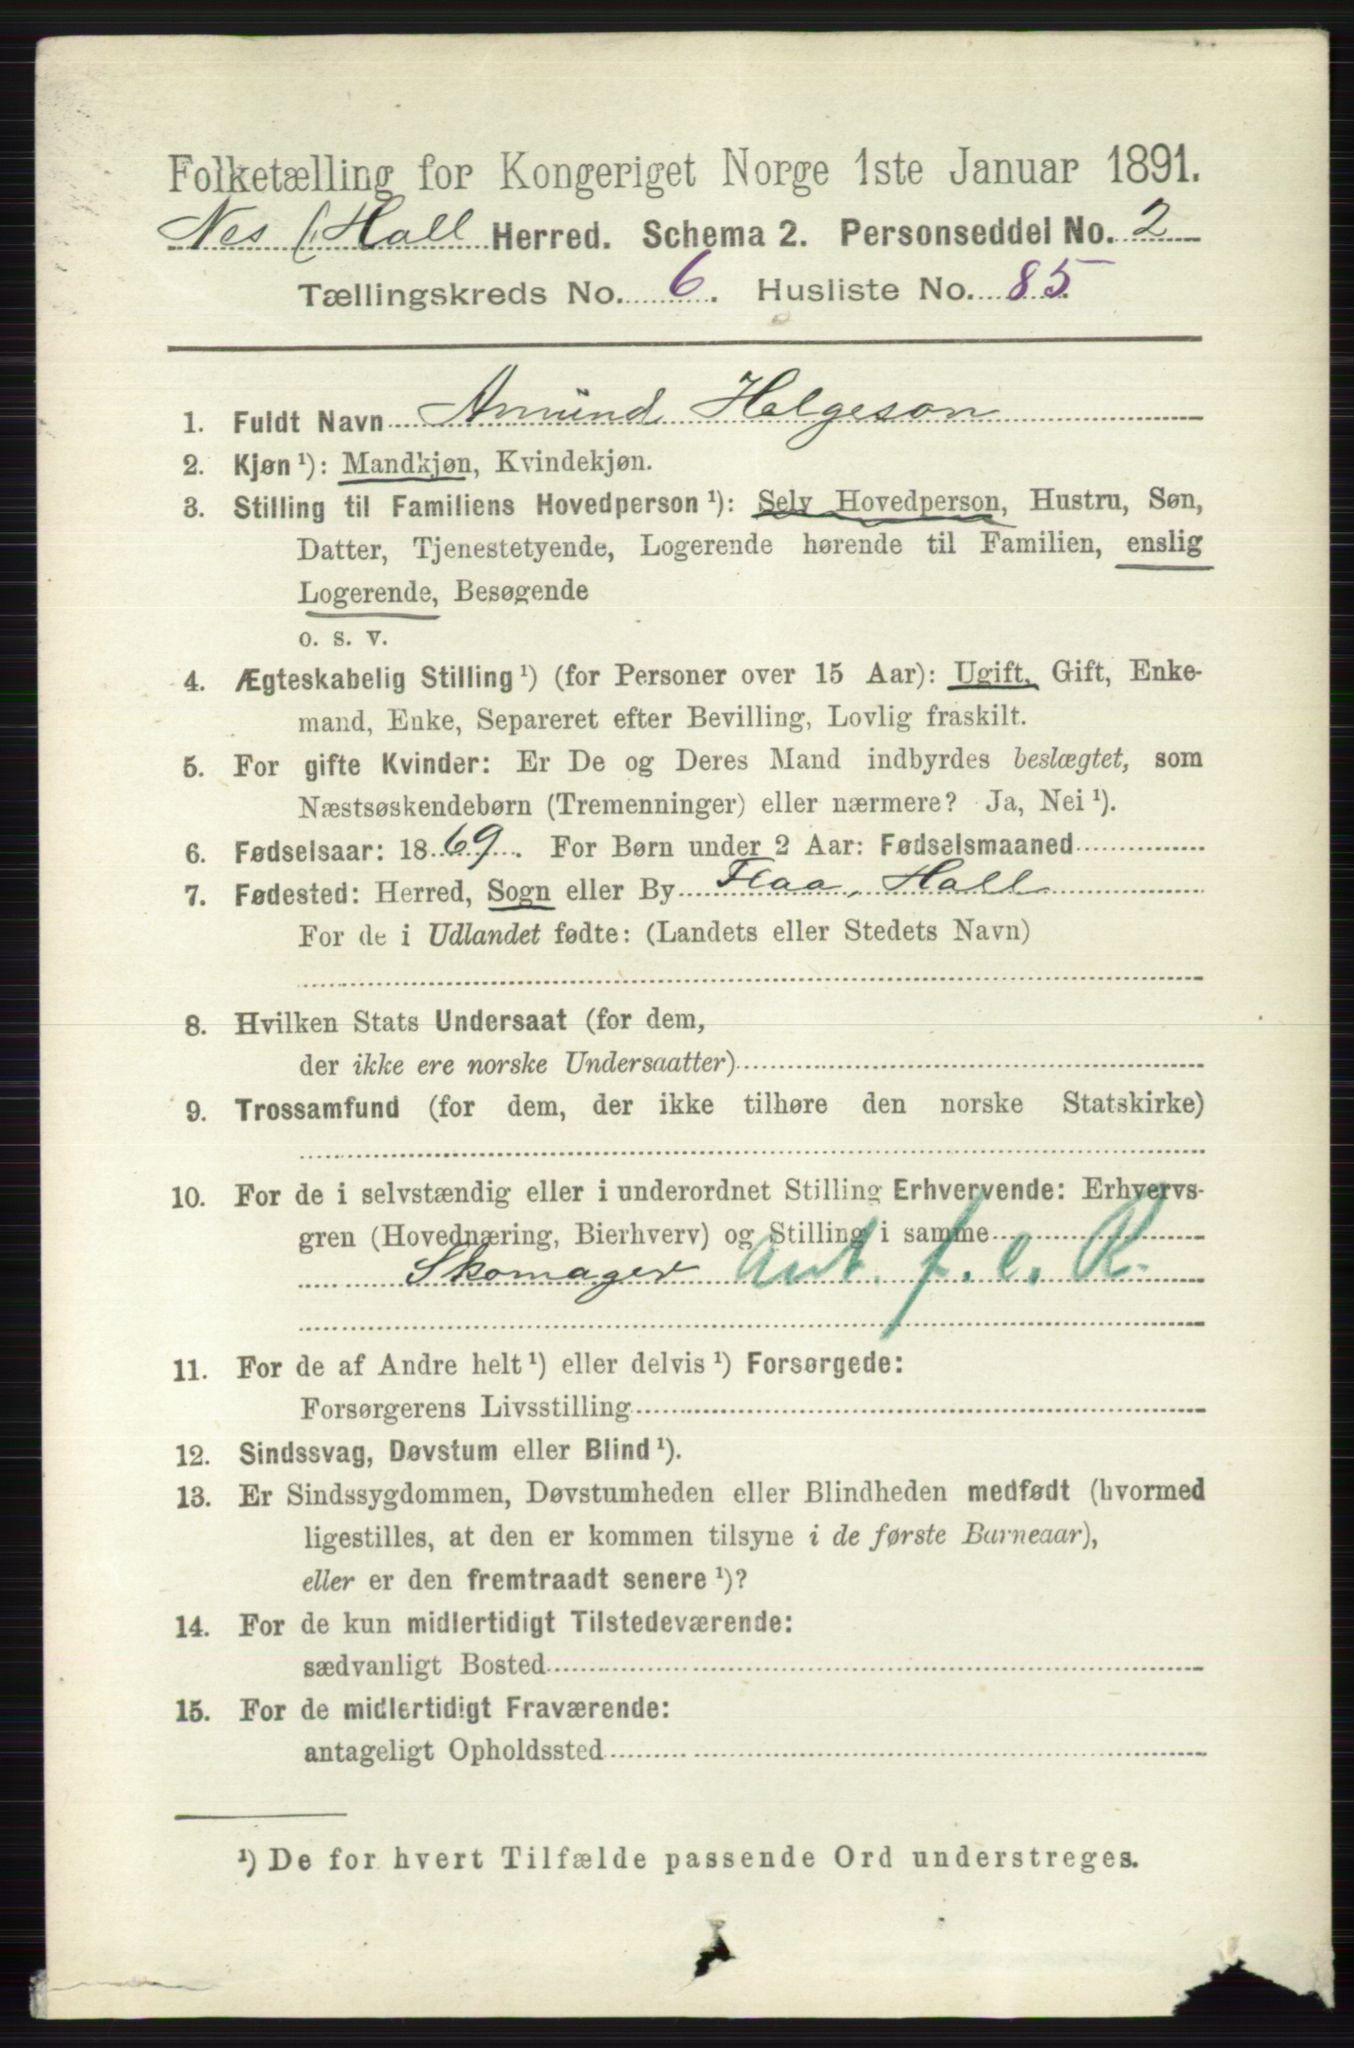 Folketælling for Kongeriget Norge 1ste Januar 1891.
Nes (Hall Herred. Schema 2. Personseddel No. 2
Tællingskreds No. 6. Husliste No. 85.
1. Fuldt Navn Amund Helgeson
2. Kjøn ¹): Mandkjøn, Kvindekjøn.
3. Stilling til Familiens Hovedperson ¹): Selv Hovedperson, Hustru, Søn,
Datter, Tjenestetyende, Logerende hørende til Familien, enslig
Logerende, Besøgende
o. s. v.
4. Ægteskabelig Stilling ¹) (for Personer over 15 Aar): Ugift, Gift, Enke-
mand, Enke, Separeret efter Bevilling, Lovlig fraskilt.
5. For gifte Kvinder: Er De og Deres Mand indbyrdes beslægtet, som
Næstsøskendebørn (Tremenninger) eller nærmere? Ja, Nei ¹).
6. Fødselsaar: 1869. For Børn under 2 Aar: Fødselsmaaned
7. Fødested: Herred, Sogn eller By Flaa, Hall
For de i Udlandet fødte: (Landets eller Stedets Navn)
8. Hvilken Stats Undersaat (for dem,
der ikke ere norske Undersaatter)
9. Trossamfund (for dem, der ikke tilhøre den norske Statskirke)
10. For de i selvstændig eller i underordnet Stilling Erhvervende: Erhvervs-
gren (Hovednæring, Bierhverv) og Stilling i samme
Skomager Ant. f. e. R.
11. For de af Andre helt ¹) eller delvis ¹) Forsørgede:
Forsørgerens Livsstilling
12. Sindssvag, Døvstum eller Blind ¹).
13. Er Sindssygdommen, Døvstumheden eller Blindheden medfødt (hvormed
ligestilles, at den er kommen tilsyne i de første Barneaar),
eller er den fremtraadt senere ¹)?
14. For de kun midlertidigt Tilstedeværende:
sædvanligt Bosted
15. For de midlertidigt Fraværende:
antageligt Opholdssted
¹) De for hvert Tilfælde passende Ord understreges.